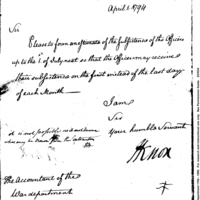 April 6. 1794
Sir
Please to form an estimate of the subsistence of the officers
up to the 1st of July next so that the officers may receive
their subsistence on the first instead of the last day
of each Month —
I am
Sir
Your humble Servant
HKnox
it is not possible
The Accountant of the
War department